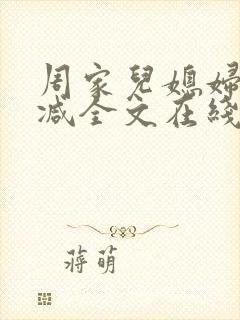 周家兒媳婦
减全文在綫
蔣萌